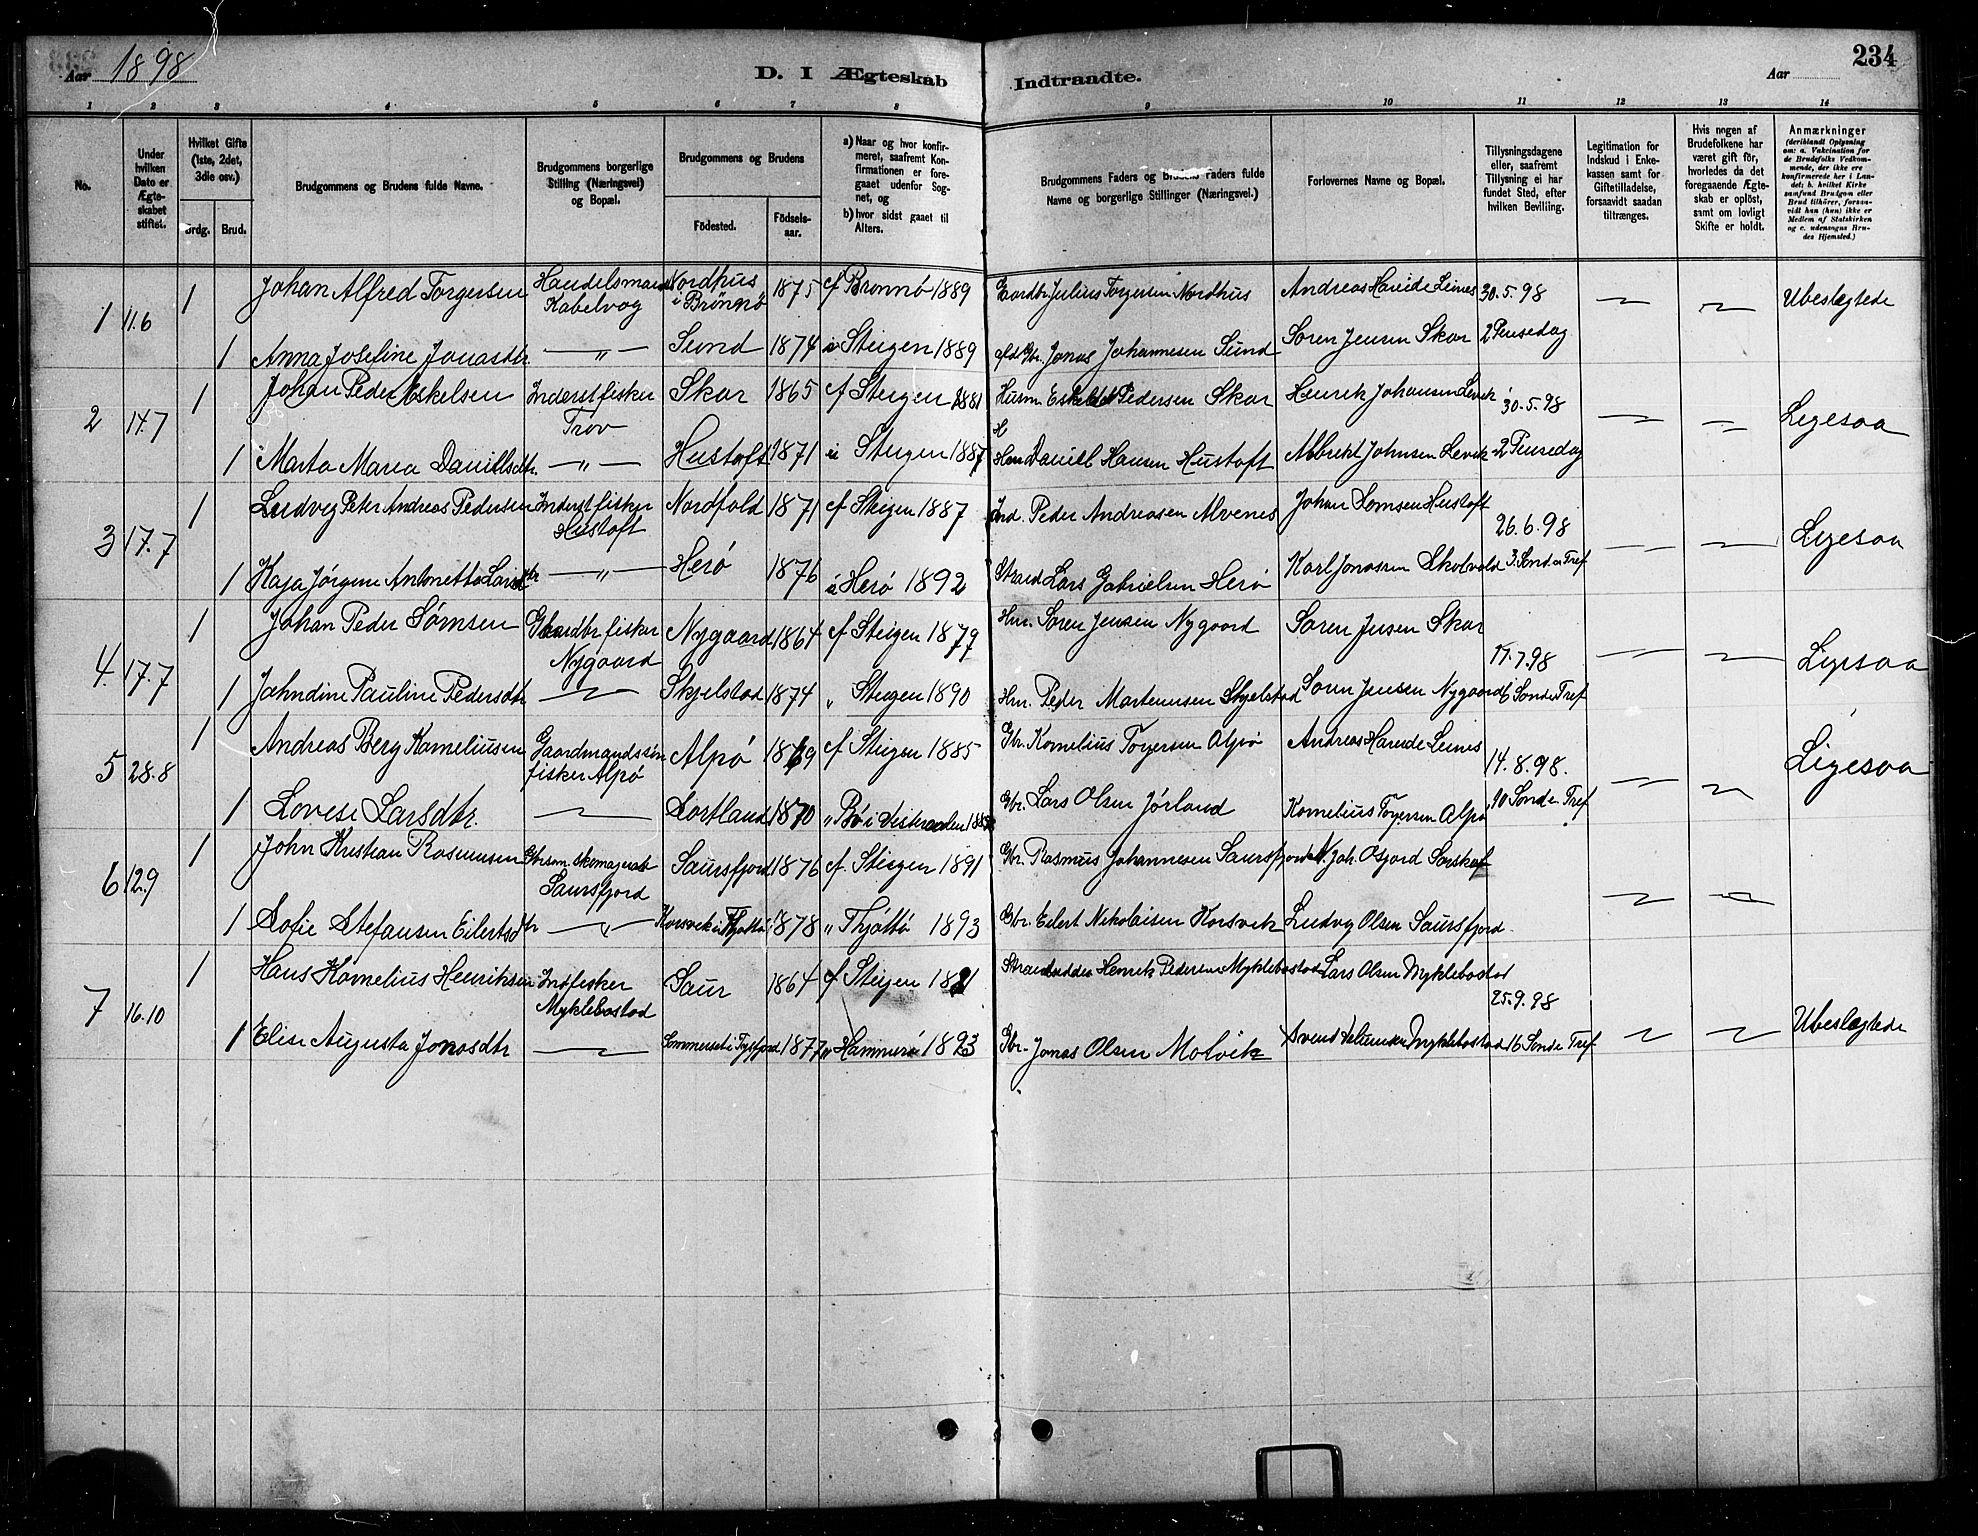 Aar 1898
D. I Ægteskab Indtraadte.
Aar
234
1 2 3 4 5 6 7 8 9 10 11 12 13 14
No.
Under hvilken Dato er Ægteskabet stiftet.
Hvilket Gifte (1ste, 2det, 3die osv.)
Brdg. Brud.
Brudgommens og Brudens fulde Navne.
Brudgommens borgerlige Stilling (Næringsvei) og Bopæl.
Brudgommens og Brudens
Födested.
Födselsaar.
a) Naar og hvor konfirmeret, saafremt Konfirmationen er foregaaet udenfor Sognet, og
b) hvor sidst gaaet til Alters.
Brudgommens Faders og Brudens Faders fulde Navne og borgerlige Stillinger (Næringsvei.)
Forlovernes Navne og Bopæl.
Tillysningsdagene eller, saafremt Tillysning ei har fundet Sted, efter hvilken Bevilling.
Legitimation for Indskud i Enkekassen samt for Giftetilladelse, forsaavidt saadan tiltrænges.
Hvis nogen af Brudefolkene har været gift för, hvorledes da det foregaaende Ægteskab er oplöst, samt om lovligt Skifte er holdt.
Anmærkninger
(deriblandt Oplysning om: a. Vakcination for de Brudefolks Vedkommende, der ikke ere konfirmerede her i Landet; b. hvilket Kirkesamfund Brudgom eller Brud tilhörer, forsaavidt han (hun) ikke er Medlem af Statskirken og c. udensogns Brudes Hjemsted.)
1 11.6 1 Johan Alfred Torgersen Handelsmand Kabelvog Nordhus i Brønnø 1875 cf Brønnø 1889 Gaardbr Julius Torgersen Nordhus Andreas Leines 30.5.98 Ubeslægtede
1 Anna Josefine Jonasdtr. — " — Sund 1874 " Steigen 1889 Gbr. Jonas Johannesen Sund Søren Jensen Skar 2 Pinsedag
2 17.7 1 Johan Peder Eskelsen Inderstfisker Trov Skar 1865 cf Steigen 1881 Husm Pedersen Skar Henrik Johansen 30.5.98 Ligesaa
1 Marta Maria Daniilsdtr. — " — Hustoft 1871 " Steigen 1887 Daniel Hansen Hustoft Albrekt Johnsen 2 Pinsedag
3 17.7 1 Ludvig Peter Andreas Pedersen Inderstfisker Hustoft Nordfold 1871 cf Steigen 1887 Ind. Peder Andreasen Alvenes Johan Hustoft 26.6.98 Ligesaa
1 Kaja Jørgine Antonette Larsdtr — " — Herø 1876 " Herø 1892 Strand Lars Gabrielsen Herø Karl Jonassen Skolvold 3. Sond. e Tref
4. 17.7 1 Johan Peder Sørnsen Gaardbr fisker Nygaard Nygaard 1864 cf Steigen 1879 Hm. Søren Jensen Nygaard Søren Jensen Skar 17.7.98 Ligesaa
1 Jahndine Pauline Pedersdtr Skjelstad 1874 " Steigen 1890 Hm. Peder Martenusen Skjelstad Søren Jensen Nygaard 6 Sond e Tref
5 28.8 1 Andreas Berg Kornelius​en Gaardmandssøn fisker Alpø Alpø 1869 cf Steigen 1885 Gbr. Kornelius Torgersen Alpø Andreas Leines 14.8.98. Ligesaa
1 Lovise Larsdtr. Sortland 1870 " Bø i Vesteraalen Gbr. Lars Olsen Jørland Kornelius Torgersen Alpø 10 Sond e Tref
6 12.9 1 John Kristian Rasmussen Gbrsøn skomager Saursfjord Saursfjord 1876 cf. Steigen 1891 Gbr. Rasmus Johannesen Saursfjord
1 Sofie Stefansen Eilertsdtr — " — Korsvik i Tjøtta 1878 " Thjøttø 1893 Gbr. Eilert Nikolaisen Korsvik Ludvig Olsen Saursfjord.
7 16.10 1 Hans Kornelius Henriksen Indfisker Myklebostad Saur 1864 cf Steigen 1881 Strandsidder Henrik Pedersen Myklebostad Lars Olsen Myklebostad 25.9.98 Ubeslægtede
1 Elise Augusta Jonasdtr Sommerset i Tysfjord 1877 " Hammerø 1893 Gbr. Jonas Olsen Molvik Myklebostad 16 Sond e Tref.